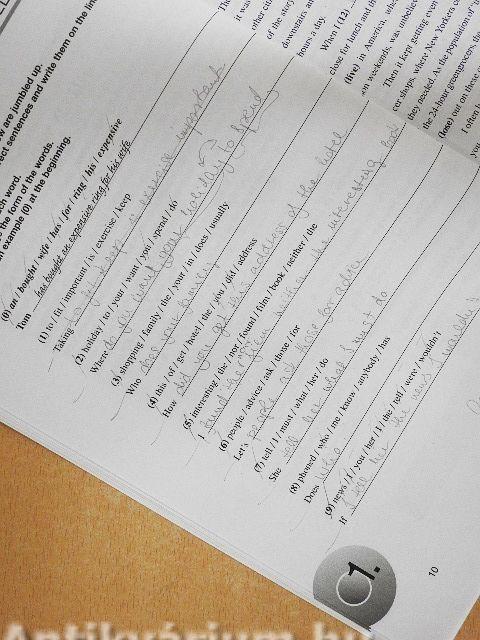 ew are jumbled up.
rect sentences and write them on the lin
ach word.
the form of the words.
n example (0) at the beginning.
(0) an / bought / wife / has / for / ring / his / expensive
Tom has bought an expensive ring for his wife
(1) to / fit / important / is / exercise / keep
Taking to fit keep is exercise important
(2) holiday / to / your / want / you / spend / do
Where do you want your holiday to spend
(3) shopping / family / the / your / in / does / usually
Who does your family
(4) this / of / get / hotel / the / you / did / address
How did you get this address of the hotel
(5) interesting / the / nor / found / film / book / neither / the
I found
(6) people / advice / ask / those / for
Let's people ask those for advice
(7) tell / I / must / what / her / do
She tell her what I must do
(8) phoned / who / me / know / anybody / has
Does who
(9) news / I / you / her / I / the / tell / were / wouldn't
If I tell her the news I wouldn't
1.
10
The
it was
other citi
of the story
downstairs an
hours a day.
When I (12)
close for lunch and th
(live) in America, whe
on weekends, was unbeliev
Then it kept getting even
cer shops, where New Yorkers co
they needed. As the population of "u
the 24-hour greengrocers, the
(here) out on these
I often h
you
Antikvárium.hu